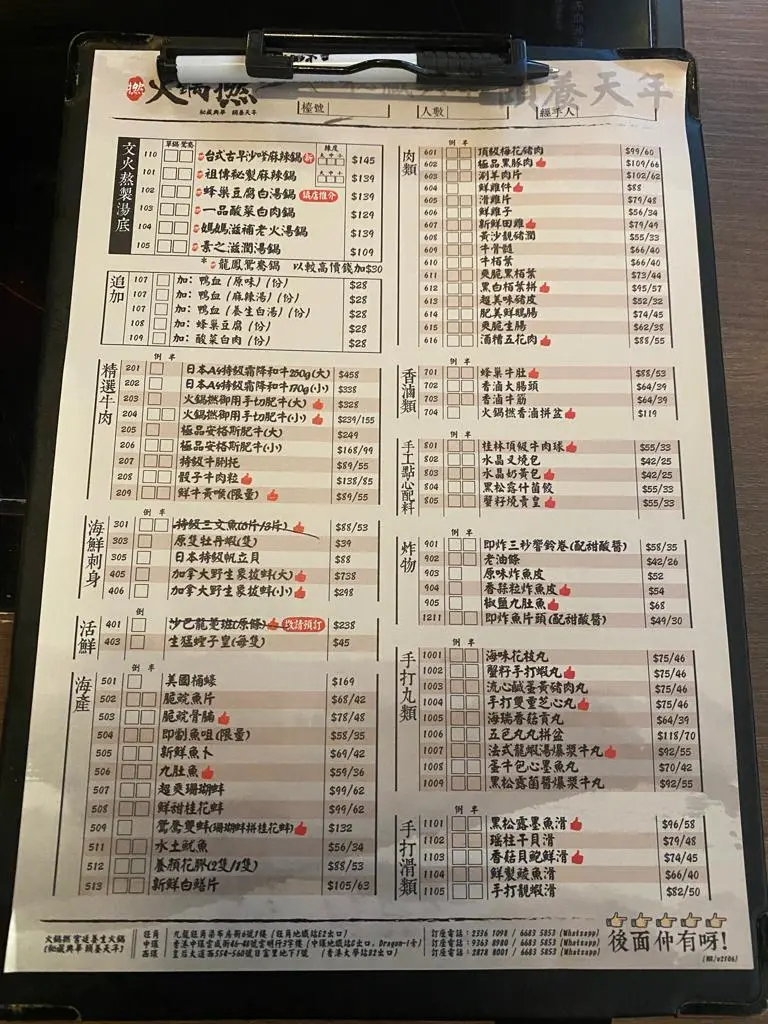 火鍋撚
頤養天年
秘藏與華 頤養天年
檯號
人數
經手人
文火熬製湯底
單鍋 鴛鴦
辣度
大 中 小
110 台式古早沙嗲麻辣鍋 新 $145
101 祖傳秘製麻辣鍋 $139
102 蜂巢豆腐白湯鍋 鎮店推介 $139
103 一品酸菜白肉鍋 $129
104 媽媽滋補老火湯鍋 $139
105 素之滋潤湯鍋 $109
* 龍鳳鴛鴦鍋 以較高價錢加$30
追加
107 加: 鴨血 (原味) (份) $28
107 加: 鴨血 (麻辣湯) (份) $28
107 加: 鴨血 (養生白湯) (份) $28
108 加: 蜂巢豆腐 (份) $28
109 加: 酸菜白肉 (份) $28
精選牛肉
例 半
201 日本A4特級霜降和牛250g(大) $458
202 日本A4特級霜降和牛170g(小) $338
203 火鍋撚御用手切肥牛(大) $328
204 火鍋撚御用手切肥牛(小) $239/155
205 極品安格斯肥牛(大) $249
206 極品安格斯肥牛(小) $168/99
207 特級牛脷托 $89/55
208 骰子牛肉粒 $138/85
209 鮮牛黃喉(限量) $89/55
海鮮刺身
例 半
301 特級三文魚(6片/3片) $88/53
303 原隻牡丹蝦(隻) $39
305 日本特級帆立貝 $88
405 加拿大野生象拔蚌(大) $738
406 加拿大野生象拔蚌(小) $298
活鮮
例
401 沙巴龍躉班(原條) 敬請預訂 $238
403 生猛蟶子皇(每隻) $45
海產
例 半
501 美國桶蠔 $169
502 脆皖魚片 $68/42
503 脆皖骨腩 $78/48
504 即劏魚咀(限量) $58/35
505 新鮮魚卜 $69/42
506 九肚魚 $59/36
507 超爽珊瑚蚌 $99/62
508 鮮甜桂花蚌 $99/62
509 鴛鴦雙蚌(珊瑚蚌拼桂花蚌) $132
511 水土魷魚 $56/34
512 養顏花膠(2隻/1隻) $88/53
513 新鮮白鱔片 $105/63
肉類
例 半
601 頂級梅花豬肉 $99/60
602 極品黑豚肉 $109/66
603 涮羊肉片 $102/62
604 鮮雞件 $88
605 滑雞片 $79/48
606 鮮雞子 $56/34
607 新鮮田雞 $79/49
608 黃沙靚豬潤 $55/33
609 牛骨髓 $66/40
610 牛栢葉 $66/40
611 爽脆黑栢葉 $73/44
612 黑白栢葉拼 $95/57
613 超美味豬皮 $52/32
614 肥美鮮鵝腸 $74/45
615 爽脆生腸 $62/38
616 酒糟五花肉 $88/55
香滷類
701 蜂巢牛肚 $88/53
702 香滷大腸頭 $64/39
703 香滷牛筋 $64/39
704 火鍋撚香滷拼盆 $119
手工點心配料
801 桂林頂級牛肉球 $55/33
802 水晶叉燒包 $42/25
803 水晶奶黃包 $42/25
804 黑松露什菌餃 $55/33
805 蟹籽燒賣皇 $55/33
炸物
例 半
901 即炸三秒響鈴卷(配甜酸醬) $58/35
902 老油條 $42/26
903 原味炸魚皮 $52
904 香蒜粒炸魚皮 $54
905 椒鹽九肚魚 $68
1211 即炸魚片頭(配甜酸醬) $49/30
手打丸類
例 半
1001 海味花枝丸 $75/46
1002 蟹籽手打蝦丸 $75/46
1003 流心鹹蛋黃豬肉丸 $75/46
1004 手打雙重芝心丸 $75/46
1005 海瑞香菇貢丸 $64/39
1006 五色丸丸拼盆 $118/70
1007 法式龍蝦湯爆漿牛丸 $92/55
1008 蛋牛包心墨魚丸 $70/42
1009 黑松露菌醬爆漿牛丸 $92/55
手打滑類
例 半
1101 黑松露墨魚滑 $96/58
1102 瑤柱干貝滑 $79/48
1103 香菇貝鮑鮮滑 $74/45
1104 鮮製鯪魚滑 $66/40
1105 手打靚蝦滑 $82/50
火鍋撚 宮廷養生火鍋
(秘藏與華 頤養天年)
旺角 九龍旺角染布房街6號2樓 (旺角地鐵站E2出口) 訂座電話:2336 1098 / 6683 5853 (Whatsapp)
中環 香港中環威靈頓街46-48號富明行3字樓 (中環地鐵站G出口, Dragon-i旁) 訂座電話:9363 8980 / 6683 5853 (Whatsapp)
西環 皇后大道西554-560號日富里地下7號 (香港大學站B2出口) 訂座電話:2878 8001 / 6683 5853 (Whatsapp)
後面仲有呀!
(MR/v2106)